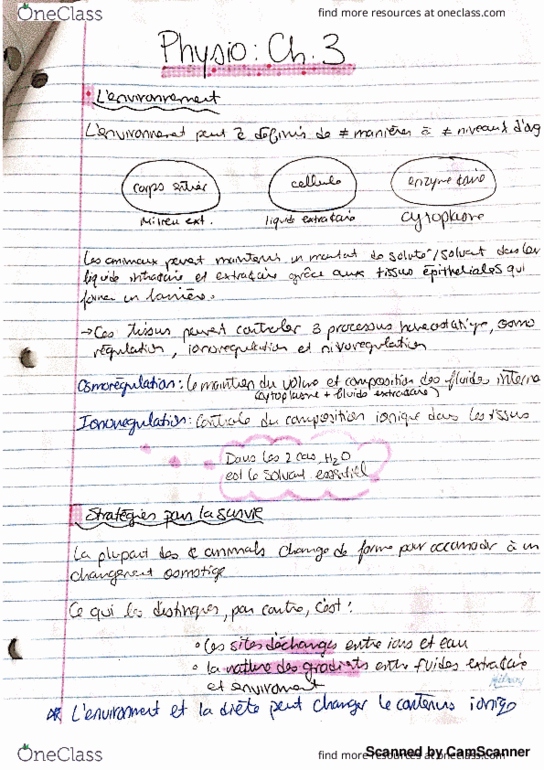 OneClass
find more resources at oneclass.com
Physio : Ch. 3
L'environnement
L'environment peut ê définis de ≠ manières à ≠ niveaux d'org
corps entier
cellule
enzyme
milieu ext.
liquide extracaire
cytoplasme
Les animaux peuvent maintenir un montant de soluté/solvant dans leur
liquide intracaire et extracaire grâce aux tissus épithéliales qui
forme un barrière.
→ Ces tissus peuvent controler 3 processus homeostatique, osmo
régulation, ionoregulation et
Osmorégulation : le maintien du volume et composition des fluides interne
(cytoplasme + fluide extracaire)
Ionoregulation : controle du composition ionique dans les tissus
Dans les 2 cas, H2O
est le solvant essentiel
Stratégies pour la survie
La plupart des animals change de forme pour accomoder à un
changement osmotique
Ce qui les distingues, par contre, c'est :
• Les sites d'échanges entre ions et eau
• la nature des gradients entre fluides extracaire
et environment
* L'environment et la diète peut changer le contenus ionique
OneClass
find more resources at oneclass.com
Scanned by CamScanner